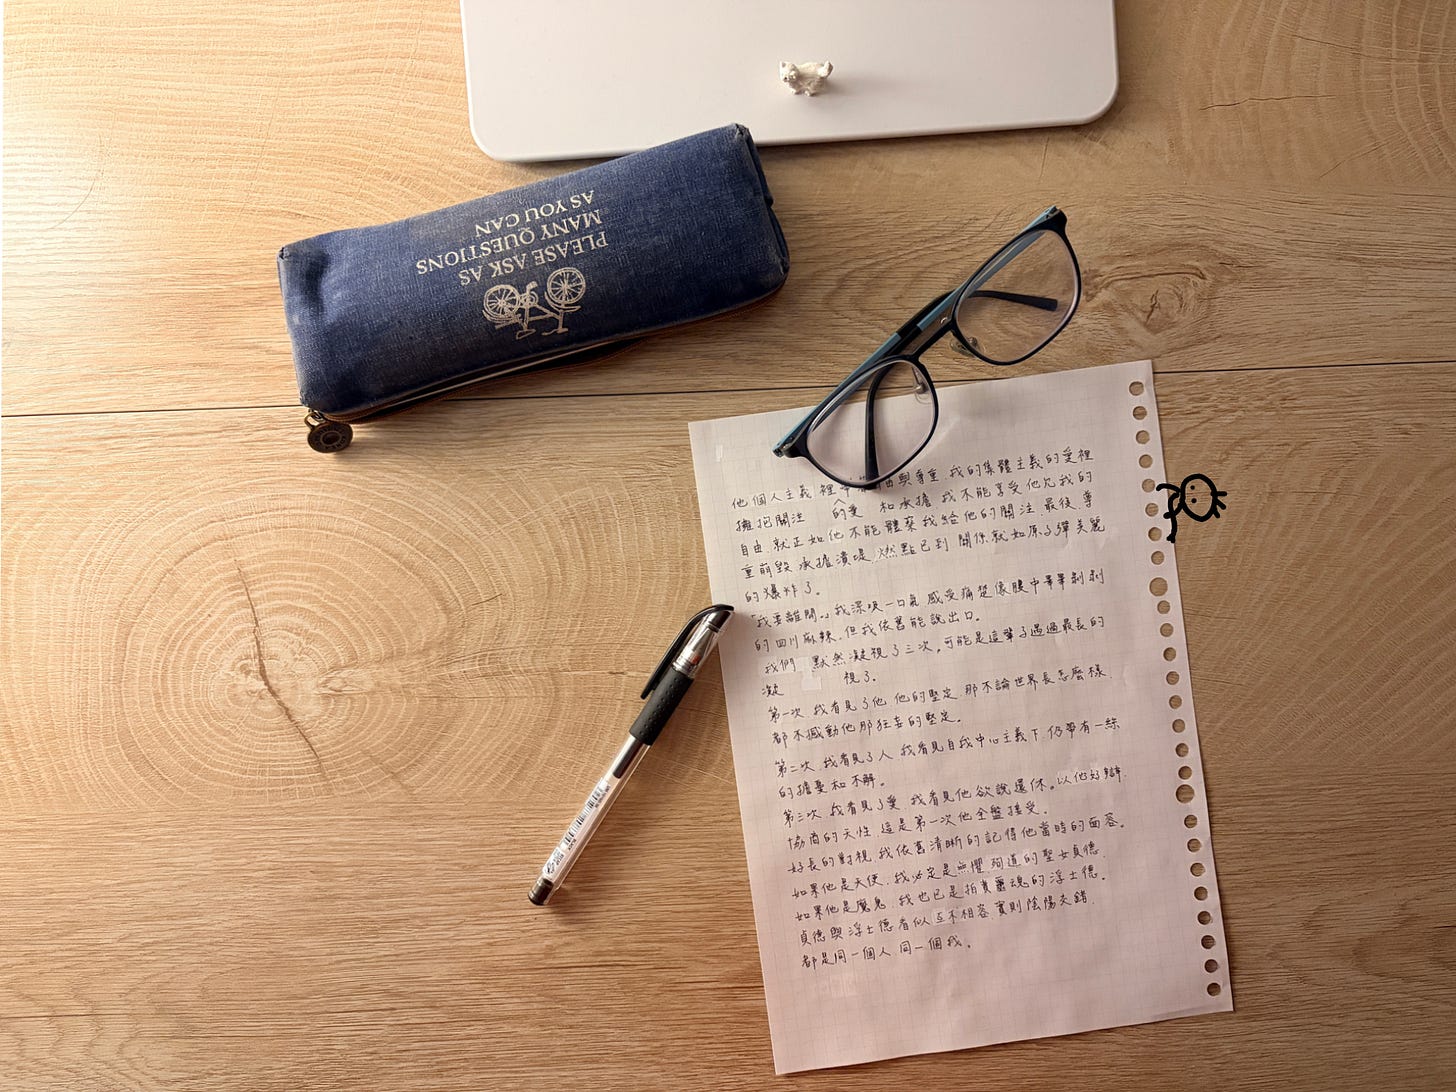 PLEASE ASK AS
MANY QUESTIONS
AS YOU CAN
他個人主義裡 與尊重,我的集體主義的愛裡
擁抱關注 的愛 和承擔,我不能享受他允我的
自由,就正如他不能體藥我給他的關注,最後,尊
重崩毀,承擔潰堤,燃點已到,關係就如原子彈美麗
的爆炸了。
「我要離開。」我深吸一口氣,感受痛楚像腰中嗶嗶剝剝
的四川麻辣,但我依舊能說出口。
我們 默然凝視了三次,可能是這輩子過過最長的
凝 視了。
第一次,我看見了他,他的堅定,那不論世界長怎麼樣,
都不撼動他那狂妄的堅定。
第二次,我看見了人,我看見自我中心主義下,仍帶有一絲
的擔憂和不解。
第三次,我看見了愛,我看見他欲說還休。以他好辯,
協商的天性,這是第一次他全盤接受。
好長的對視,我依舊清晰的記得他當時的面容。
如果他是天使,我必定是無懼殉道的聖女貞德,
如果他是魔鬼,我也已是拍賣靈魂的浮士德。
貞德與浮士德看似互不相容,實則陰陽交錯,
都是同一個人,同一個我。